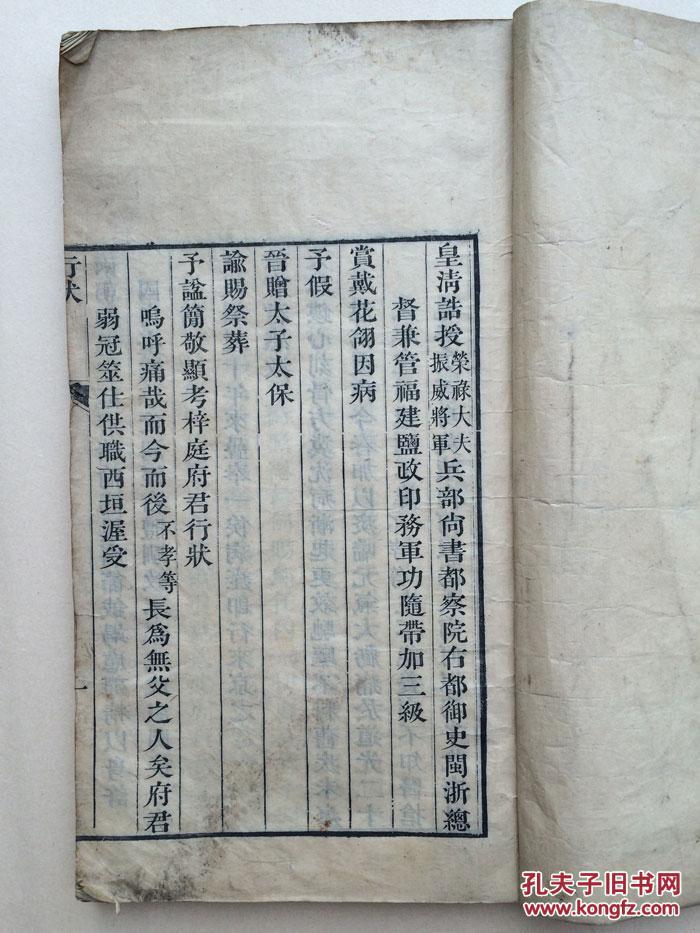 皇清誥授榮祿大夫振威將軍兵部尚書都察院右都御史閩浙總
督兼管福建鹽政印務軍功隨帶加三級
賞戴花翎因病
予假
晉贈太子太保
諭賜祭葬
予諡簡敬顯考梓庭府君行狀
嗚呼痛哉而今而後不孝等長爲無父之人矣府君
弱冠筮仕供職西垣渥受
行狀
一
孔夫子旧书网
www.kongfz.com